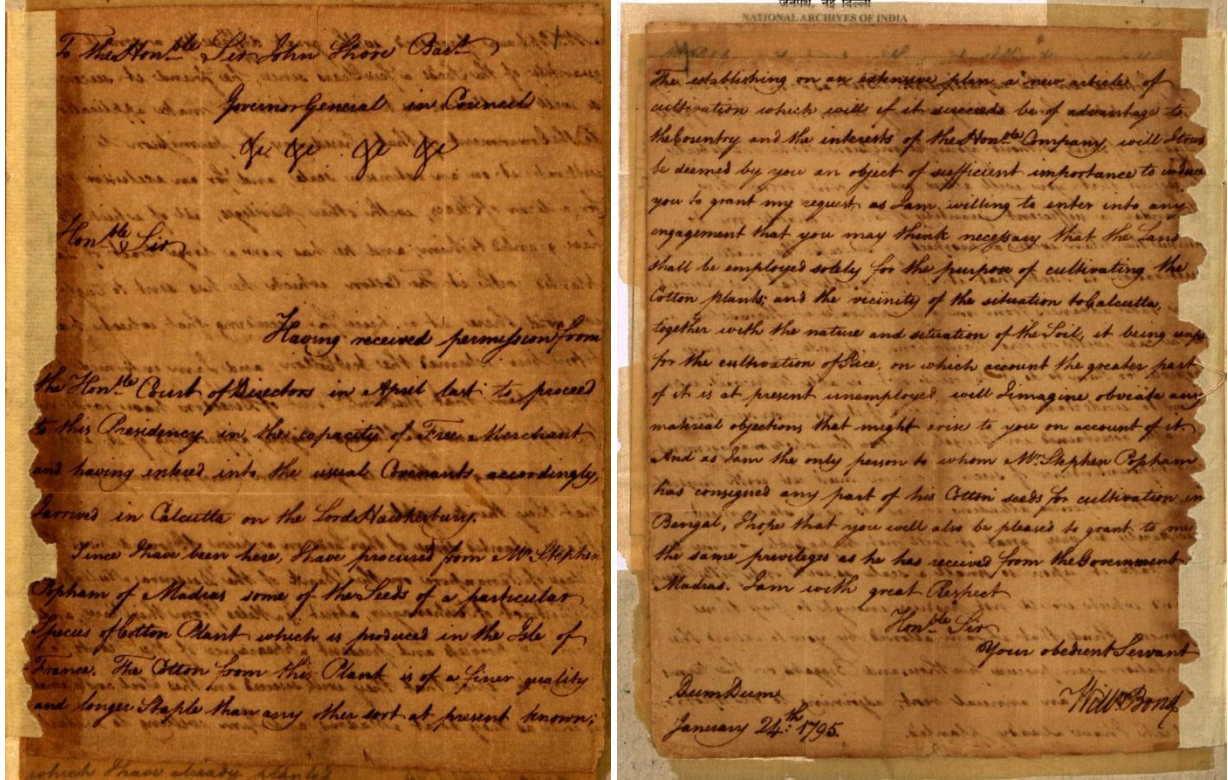 To the Hon.ble Sir John Shore Bar.t
Governor General in Council
&c &c &c &c
Hon.ble Sir
Having received permission from
the Hon.ble Court of Directors in April last to proceed
to this Presidency in the capacity of Free Merchant
and having entered into the usual Covenants accordingly,
I arrived in Calcutta on the Lord Hawkesbury.
Since I have been here, I have procured from Mr. Stephen
Popham of Madras some of the Seeds of a particular
Species of Cotton Plant which is produced in the Isle of
France. The Cotton from this Plant is of a finer quality
and longer Staple than any other sort at present known;
which I have already planted
जनपथ, नई दिल्ली
NATIONAL ARCHIVES OF INDIA
The establishing on an extensive plan a new article of
cultivation which will if it succeeds be of advantage to
the Country and the interests of the Hon.ble Company, will I trust
be deemed by you an object of sufficient importance to induce
you to grant my request as I am willing to enter into any
engagement that you may think necessary that the Land
shall be employed solely for the purpose of cultivating the
Cotton plants; and the vicinity of the situation to Calcutta,
together with the nature and situation of the Soil, it being unfit
for the cultivation of Rice, on which account the greater part
of it is at present unemployed will I imagine obviate any
material objections that might arise to you on account of it
And as I am the only person to whom Mr. Stephen Popham
has consigned any part of his Cotton seeds for cultivation in
Bengal, I hope that you will also be pleased to grant to me
the same privileges as he has received from the Government
Madras. I am with great Respect
Hon.ble Sir
Your obedient Servant
Will.m Bond
Dum Dum
January 24.th 1795.